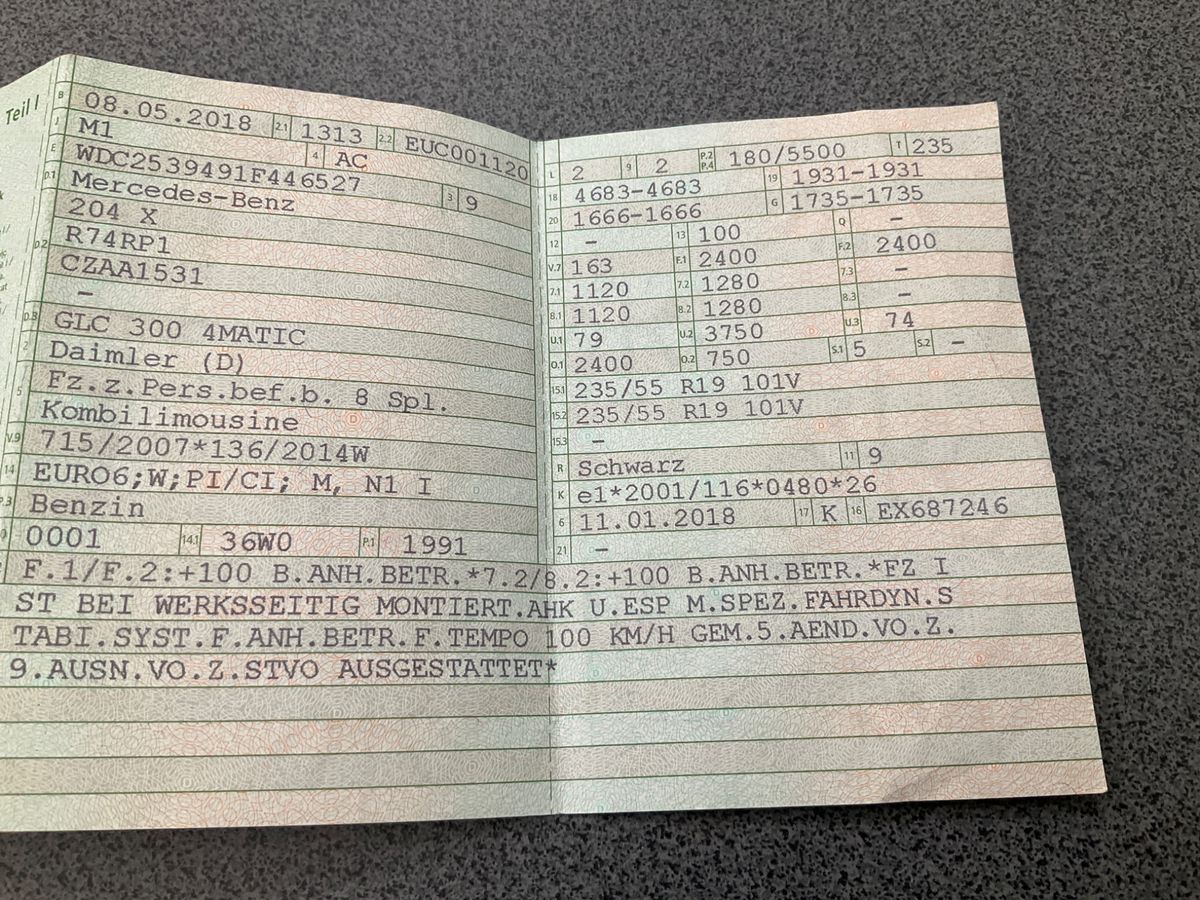 Teil I
B 08.05.2018 2.1 1313 2.2 EUC001120
J M1 4 AC
E WDC2539491F446527 3 9
D.1 Mercedes-Benz
204 X
D.2 R74RP1
CZAA1531
–
D.3 GLC 300 4MATIC
2 Daimler (D)
5 Fz.z.Pers.bef.b. 8 Spl.
Kombilimousine
V.9 715/2007*136/2014W
14 EURO6;W;PI/CI; M, N1 I
P.3 Benzin
0001 14.1 36W0 P.1 1991
L 2 9 2 P.2 P.4 180/5500 T 235
18 4683-4683 19 1931-1931
20 1666-1666 G 1735-1735
12 – 13 100 Q –
V.7 163 F.1 2400 F.2 2400
7.1 1120 7.2 1280 7.3 –
8.1 1120 8.2 1280 8.3 –
U.1 79 U.2 3750 U.3 74
O.1 2400 O.2 750 S.1 5 S.2 –
15.1 235/55 R19 101V
15.2 235/55 R19 101V
15.3 –
R Schwarz 11 9
K e1*2001/116*0480*26
6 11.01.2018 17 K 16 EX687246
21 –
F.1/F.2:+100 B.ANH.BETR.*7.2/8.2:+100 B.ANH.BETR.*FZ I
ST BEI WERKSSEITIG MONTIERT.AHK U.ESP M.SPEZ.FAHRDYN.S
TABI.SYST.F.ANH.BETR.F.TEMPO 100 KM/H GEM.5.AEND.VO.Z.
9.AUSN.VO.Z.STVO AUSGESTATTET*